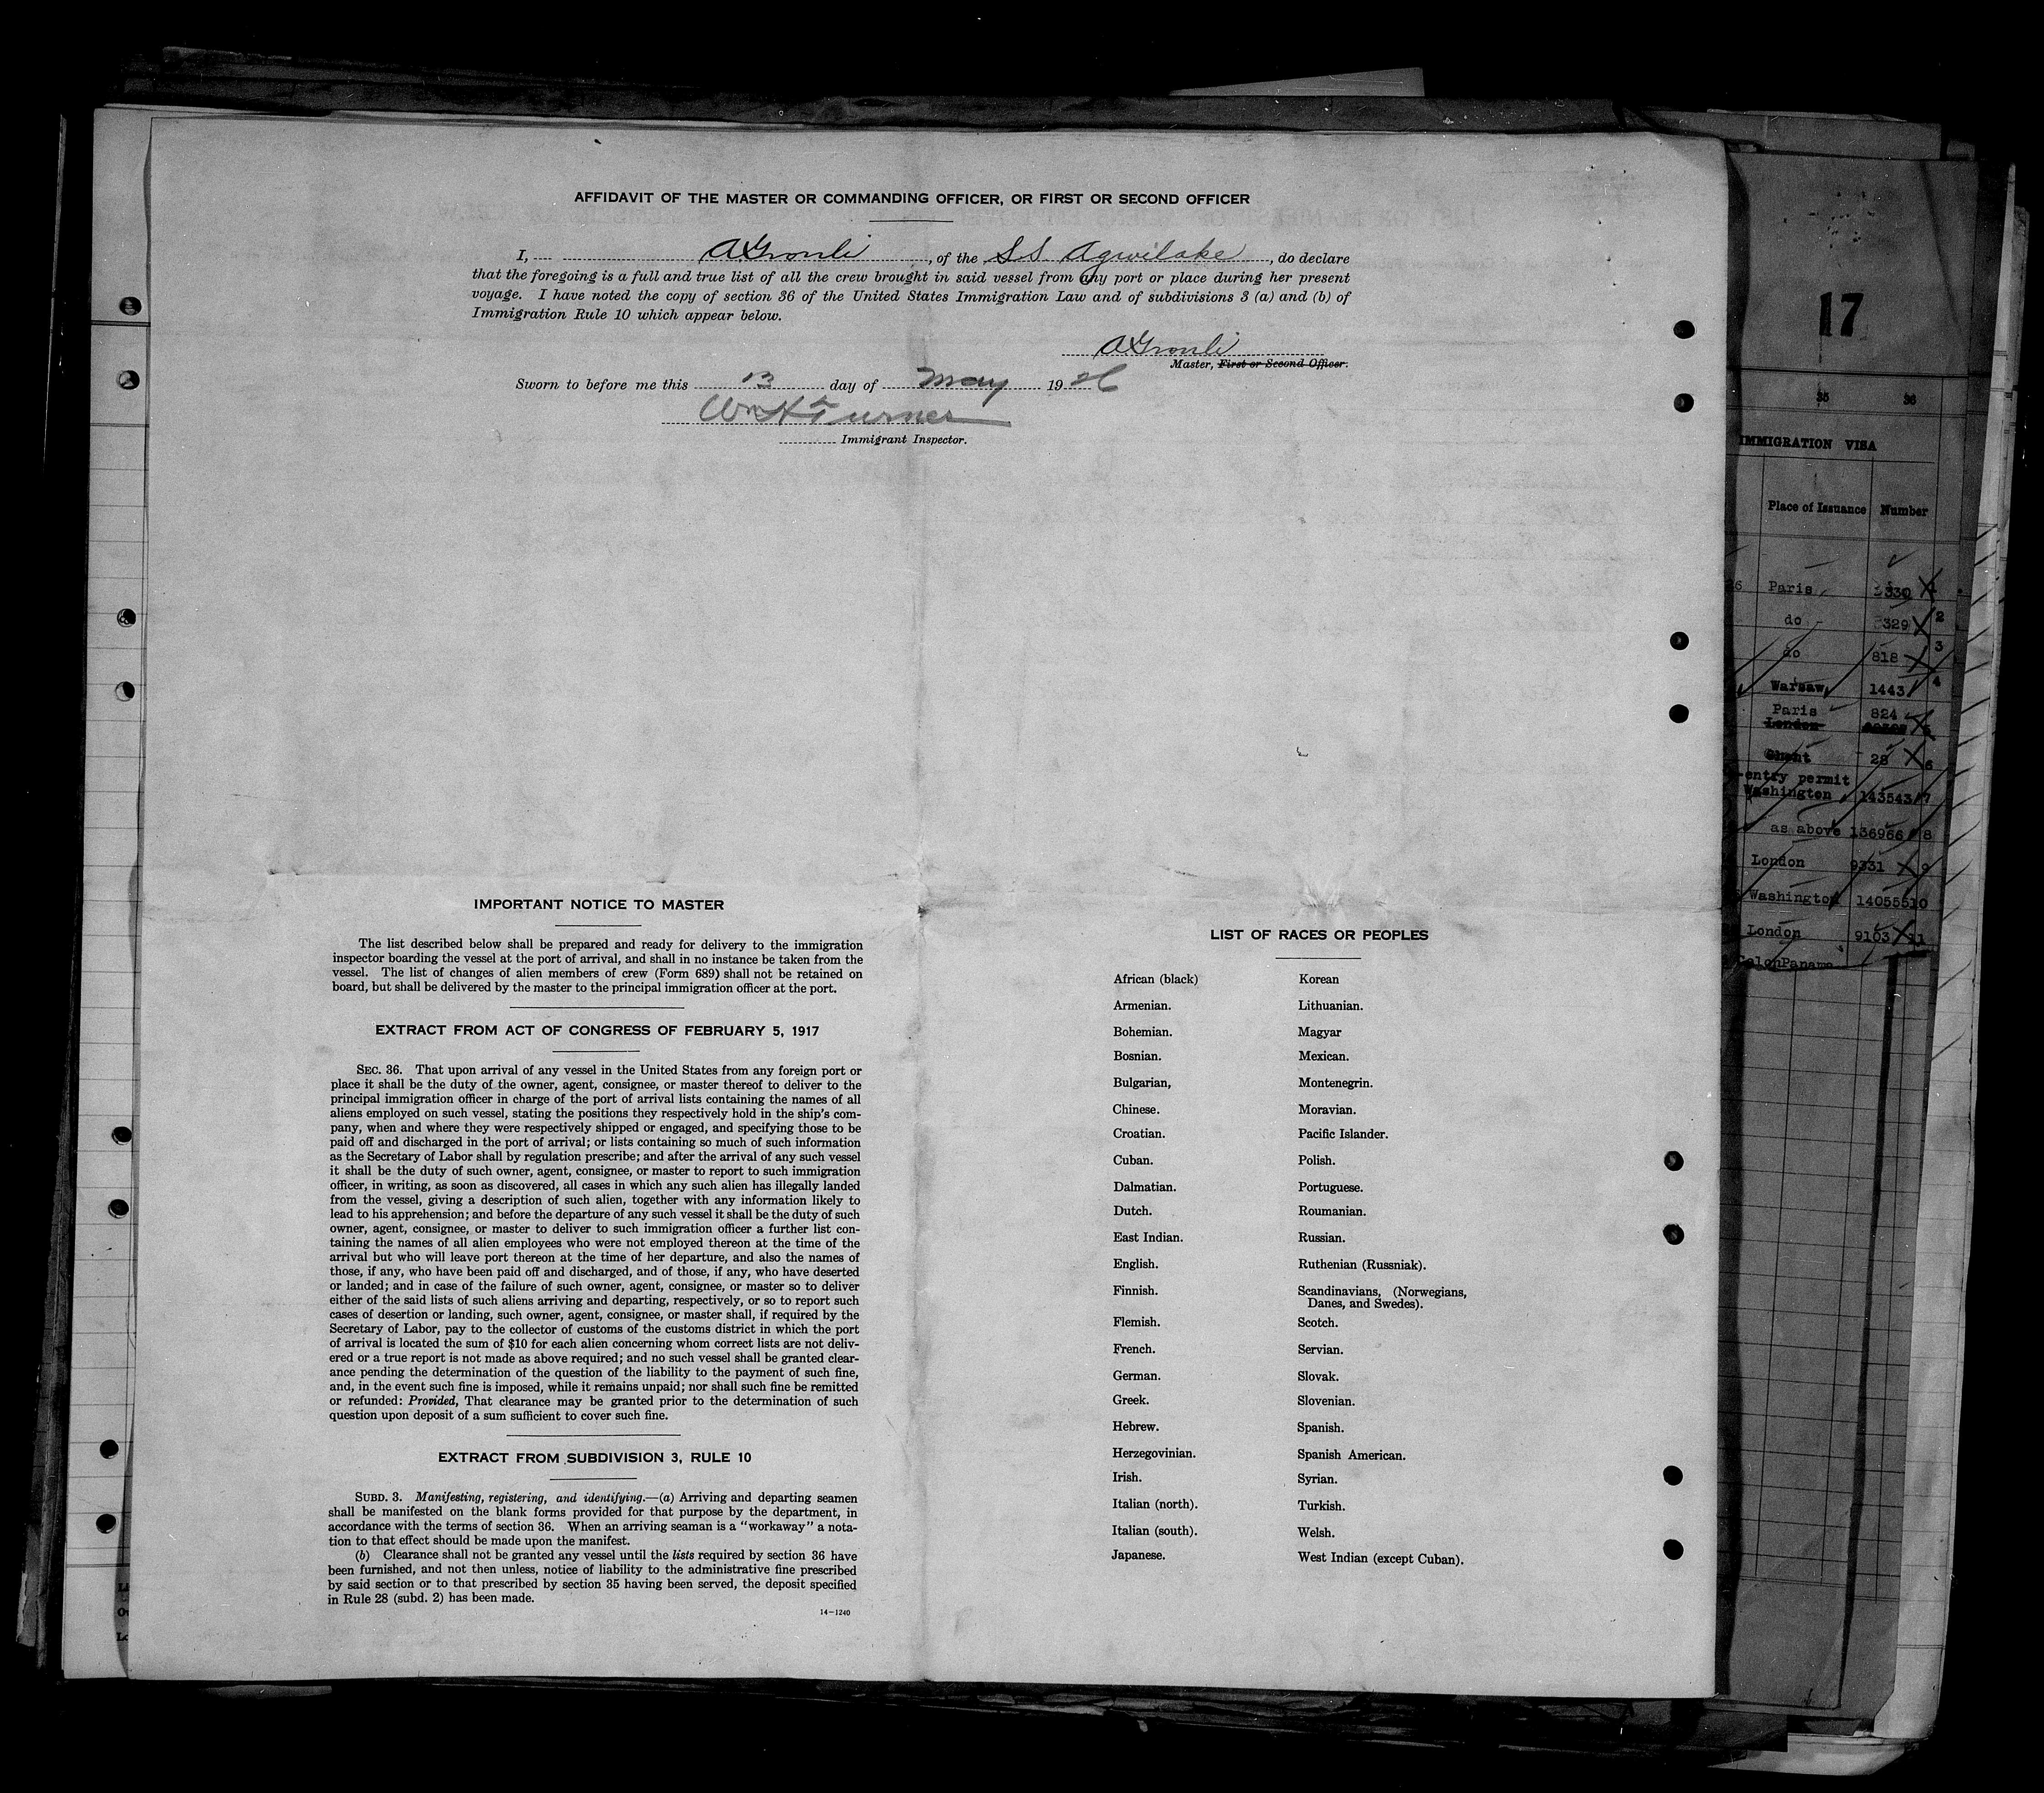 AFFIDAVIT OF THE MASTER OR COMMANDING OFFICER, OR FIRST OR SECOND OFFICER
I, A Gronli, of the S.S. Agwilake, do declare
that the foregoing is a full and true list of all the crew brought in said vessel from any port or place during her present
voyage. I have noted the copy of section 36 of the United States Immigration Law and of subdivisions 3 (a) and (b) of
Immigration Rule 10 which appear below.
A Gronli
Master, First or Second Officer.
Sworn to before me this 13 day of May 1926
Wm H Turner
Immigrant Inspector.
IMPORTANT NOTICE TO MASTER
The list described below shall be prepared and ready for delivery to the immigration
inspector boarding the vessel at the port of arrival, and shall in no instance be taken from the
vessel. The list of changes of alien members of crew (Form 689) shall not be retained on
board, but shall be delivered by the master to the principal immigration officer at the port.
EXTRACT FROM ACT OF CONGRESS OF FEBRUARY 5, 1917
SEC. 36. That upon arrival of any vessel in the United States from any foreign port or
place it shall be the duty of the owner, agent, consignee, or master thereof to deliver to the
principal immigration officer in charge of the port of arrival lists containing the names of all
aliens employed on such vessel, stating the positions they respectively hold in the ship's com-
pany, when and where they were respectively shipped or engaged, and specifying those to be
paid off and discharged in the port of arrival; or lists containing so much of such information
as the Secretary of Labor shall by regulation prescribe; and after the arrival of any such vessel
it shall be the duty of such owner, agent, consignee, or master to report to such immigration
officer, in writing, as soon as discovered, all cases in which any such alien has illegally landed
from the vessel, giving a description of such alien, together with any information likely to
lead to his apprehension; and before the departure of any such vessel it shall be the duty of such
owner, agent, consignee, or master to deliver to such immigration officer a further list con-
taining the names of all alien employees who were not employed thereon at the time of the
arrival but who will leave port thereon at the time of her departure, and also the names of
those, if any, who have been paid off and discharged, and of those, if any, who have deserted
or landed; and in case of the failure of such owner, agent, consignee, or master so to deliver
either of the said lists of such aliens arriving and departing, respectively, or so to report such
cases of desertion or landing, such owner, agent, consignee, or master shall, if required by the
Secretary of Labor, pay to the collector of customs of the customs district in which the port
of arrival is located the sum of $10 for each alien concerning whom correct lists are not deliv-
ered or a true report is not made as above required; and no such vessel shall be granted clear-
ance pending the determination of the question of the liability to the payment of such fine,
and, in the event such fine is imposed, while it remains unpaid; nor shall such fine be remitted
or refunded: Provided, That clearance may be granted prior to the determination of such
question upon deposit of a sum sufficient to cover such fine.
EXTRACT FROM SUBDIVISION 3, RULE 10
SUBD. 3. Manifesting, registering, and identifying.—(a) Arriving and departing seamen
shall be manifested on the blank forms provided for that purpose by the department, in
accordance with the terms of section 36. When an arriving seaman is a "workaway" a nota-
tion to that effect should be made upon the manifest.
(b) Clearance shall not be granted any vessel until the lists required by section 36 have
been furnished, and not then unless, notice of liability to the administrative fine prescribed
by said section or to that prescribed by section 35 having been served, the deposit specified
in Rule 28 (subd. 2) has been made.
14—1240
LIST OF RACES OR PEOPLES
African (black) Korean
Armenian. Lithuanian.
Bohemian. Magyar
Bosnian. Mexican.
Bulgarian, Montenegrin.
Chinese. Moravian.
Croatian. Pacific Islander.
Cuban. Polish.
Dalmatian. Portuguese.
Dutch. Roumanian.
East Indian. Russian.
English. Ruthenian (Russniak).
Finnish. Scandinavians, (Norwegians,
Danes, and Swedes).
Flemish. Scotch.
French. Servian.
German. Slovak.
Greek. Slovenian.
Hebrew. Spanish.
Herzegovinian. Spanish American.
Irish. Syrian.
Italian (north). Turkish.
Italian (south). Welsh.
Japanese. West Indian (except Cuban).
17
35 36
IMMIGRATION VISA
Place of Issuance Number
Paris 1
do 329 2
do 818 3
Warsaw 1443 4
Paris 824
London 5
Ghent 28 6
-entry permit
Washington 143543 7
as above 136966 8
London 9331 9
Washington 140555 10
London 9103 11
Colon Panama